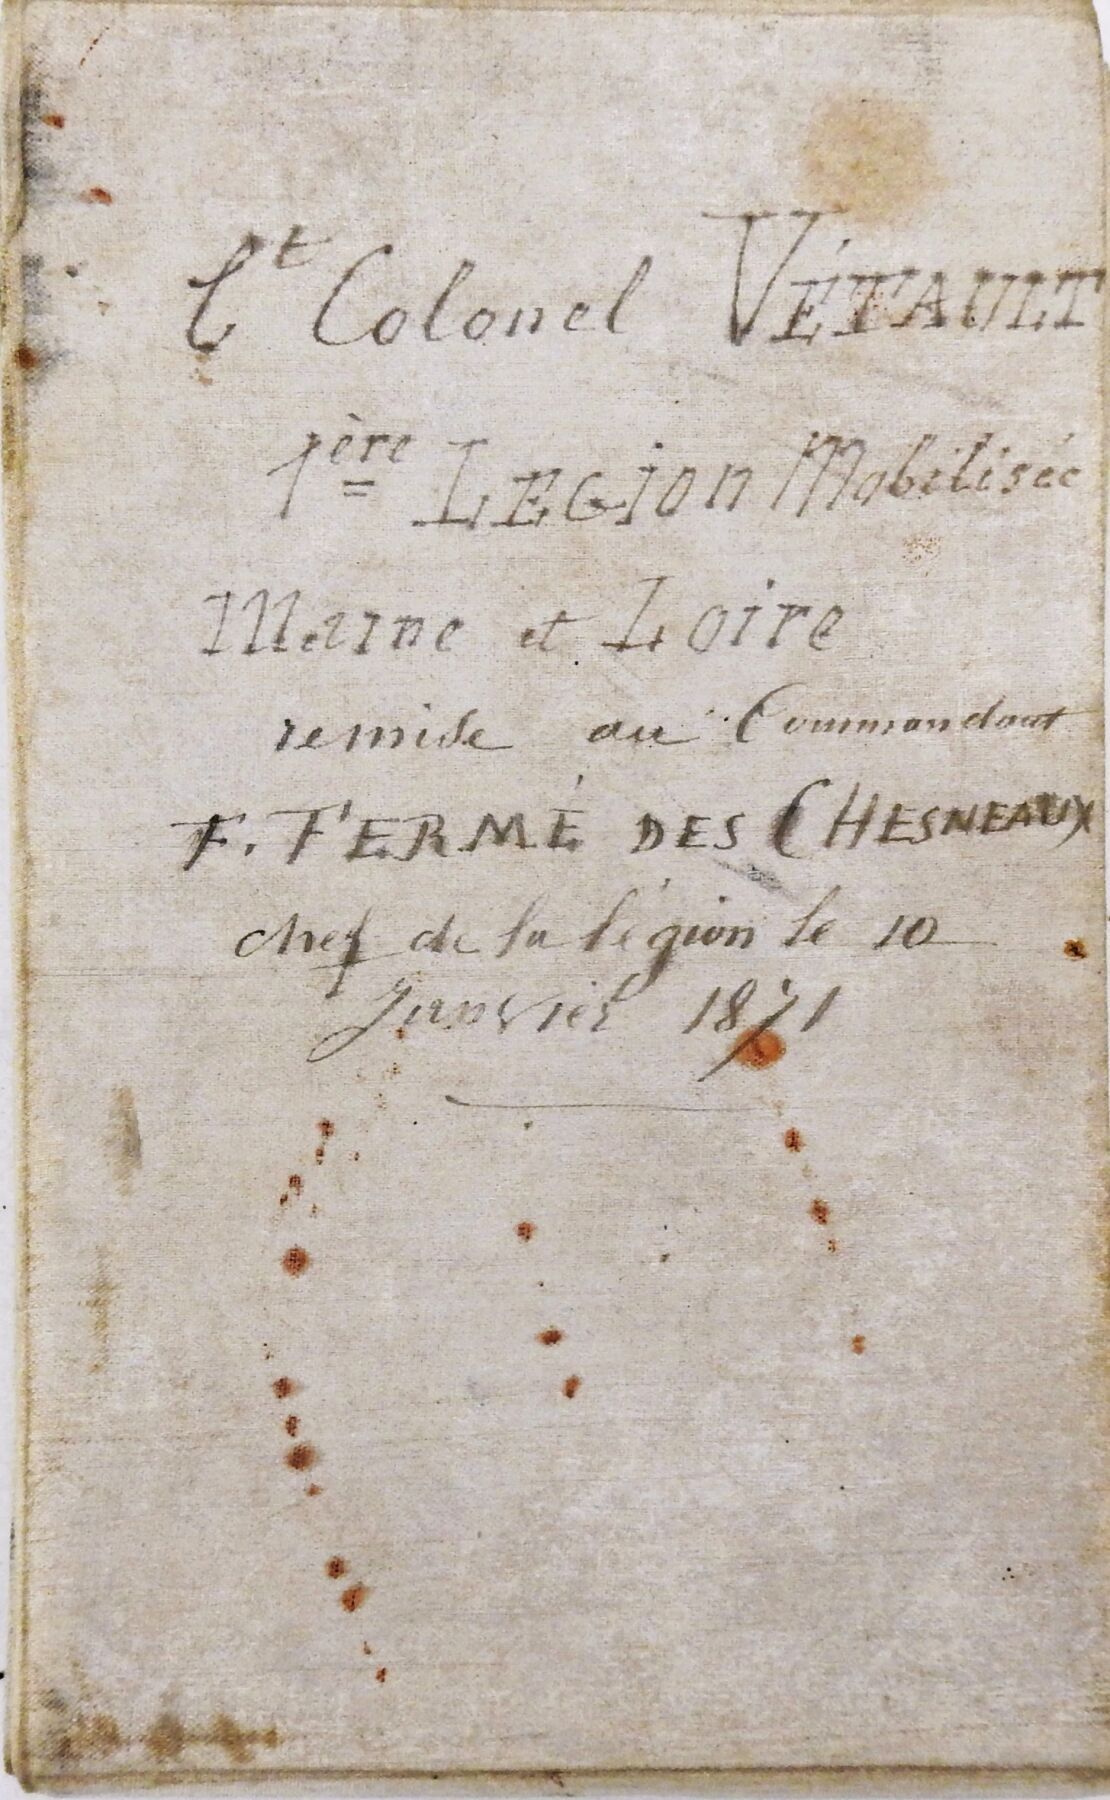 Lt Colonel VÉTAULT
1ère LEGion Mobilisée
Maine et Loire
remise au Commandant
F. FERMÉ DES CHESNEAUX
chef de la légion le 10
Janvier 1871